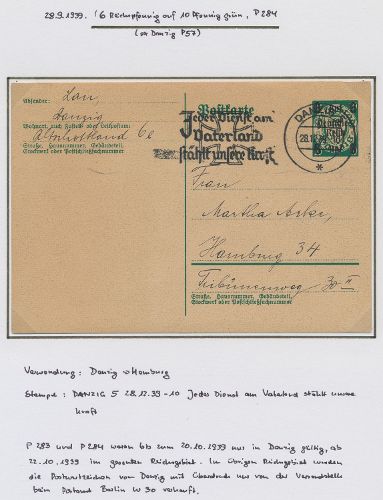 28.9.1939. 6 Reichspfennig auf 10 Pfennig grün, P284
(ex Danzig P57)
Absender:
Danzig
Wohnort, auch Zustell- oder Leitpostamt:
6e
Straße, Hausnummer, Gebäudeteil,
Stockwerk oder Postschließfachnummer
Postkarte
Jeder Dienst am
Vaterland
stählt unsere Kraft
DANZIG
28.12.
Frau
Martha
Hamburg 34
30 II
Straße, Hausnummer, Gebäudeteil,
Stockwerk oder Postschließfachnummer
Verwendung: Danzig n. Hamburg
Stempel: DANZIG 5 28.12.39-10 Jedes Dienst am Vaterland stählt unsere
Kraft
P 283 und P 284 waren bis zum 20.10.1939 nur in Danzig gültig, ab
22.10.1939 im gesamten Reichsgebiet. Im übrigen Reichsgebiet wurden
die Postkarten von Danzig mit Überdruck nur von der Versandstelle
beim Postamt Berlin W 30 verkauft.